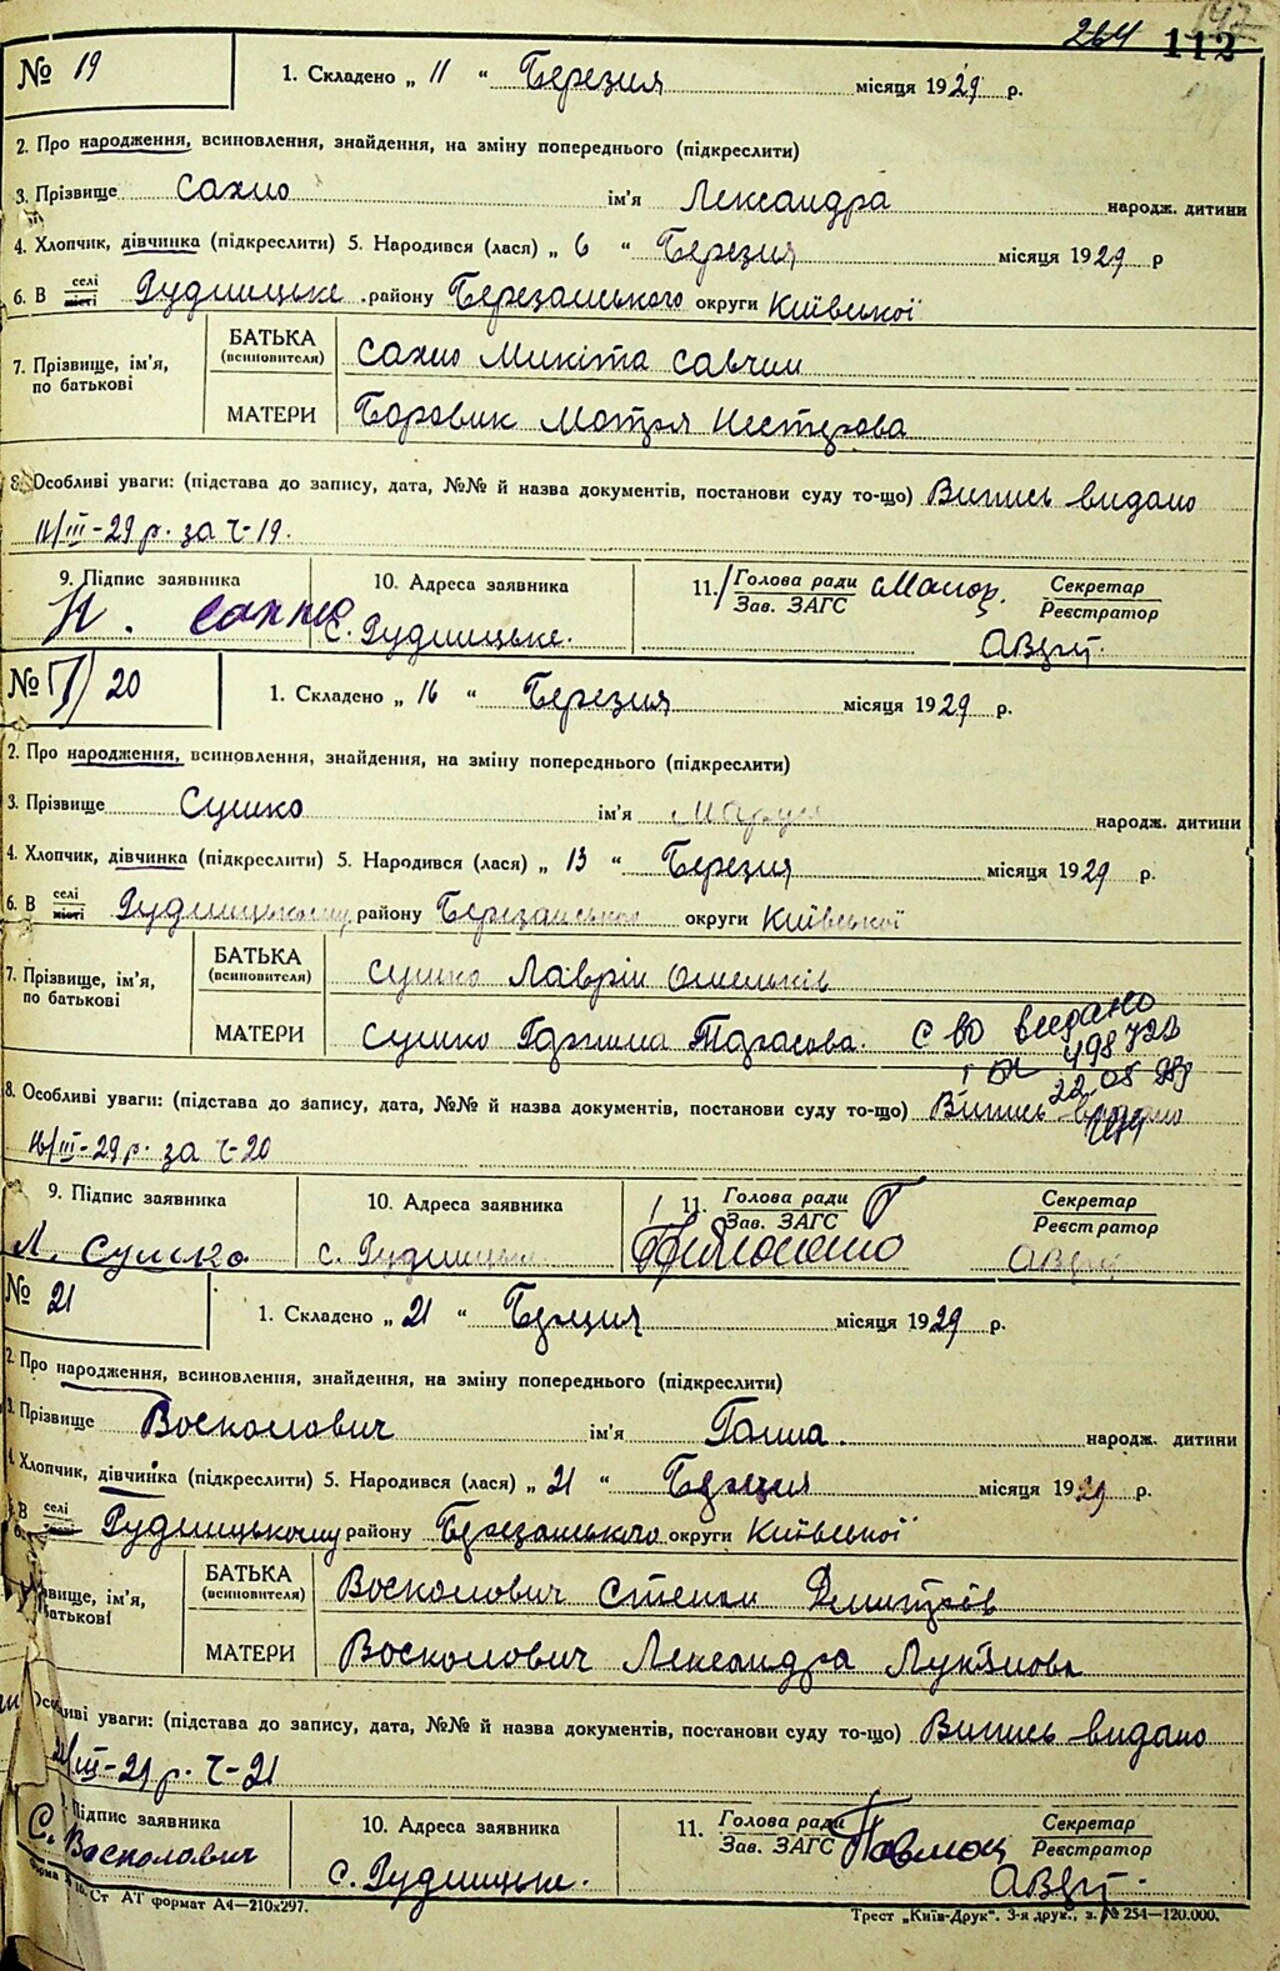 264 112
№ 19 1. Складено „ 11 “ Березня місяця 1929 р.
2. Про народження, всиновлення, знайдення, на зміну попереднього (підкреслити)
3. Прізвище Сахно ім'я Лександра народж. дитини
4. Хлопчик, дівчинка (підкреслити) 5. Народився (лася) „ 6 “ Березня місяця 1929 р
6. В селі місті Рудницьке району Березанського округи Київської
7. Прізвище, ім'я, по батькові БАТЬКА (всиновителя) Сахно Микіта Савчин
МАТЕРИ Боровик Мотря Нестерова
8. Особливі уваги: (підстава до запису, дата, №№ й назва документів, постанови суду то-що) Випись видано
11/III-29 р. за Ч-19.
9. Підпис заявника 10. Адреса заявника 11. Голова ради Зав. ЗАГС Секретар Реєстратор
Н. Сахно с. Рудницьке.
№ 20 1. Складено „ 16 “ Березня місяця 1929 р.
2. Про народження, всиновлення, знайдення, на зміну попереднього (підкреслити)
3. Прізвище Сушко ім'я Маруся народж. дитини
4. Хлопчик, дівчинка (підкреслити) 5. Народився (лася) „ 13 “ Березня місяця 1929 р.
6. В селі місті Рудницькому району Березанського округи Київської
7. Прізвище, ім'я, по батькові БАТЬКА (всиновителя) Сушко Лаврін Омельків
МАТЕРИ Сушко Горпина Тарасова. С во видано
498722
22.05
8. Особливі уваги: (підстава до запису, дата, №№ й назва документів, постанови суду то-що) Випись видано
16/III-29 р. за Ч-20
9. Підпис заявника 10. Адреса заявника 11. Голова ради Зав. ЗАГС Секретар Реєстратор
Л. Сушко с. Рудницьке
№ 21 1. Складено „ 21 “ Березня місяця 1929 р.
2. Про народження, всиновлення, знайдення, на зміну попереднього (підкреслити)
3. Прізвище Восколович ім'я Ганна. народж. дитини
4. Хлопчик, дівчинка (підкреслити) 5. Народився (лася) „ 21 “ Березня місяця 1929 р.
6. В селі Рудницькому району Березанського округи Київської
звище, ім'я, батькові БАТЬКА (всиновителя) Восколович Степан Дмитрів
МАТЕРИ Восколович Лександра Лук'янова
Особливі уваги: (підстава до запису, дата, №№ й назва документів, постанови суду то-що) Випись видано
21/III-29 р. Ч-21
Підпис заявника 10. Адреса заявника 11. Голова ради Зав. ЗАГС Секретар Реєстратор
С. Восколович с. Рудницьке.
Ст АТ формат А4—210х297.
Трест „Київ-Друк“. 3-я друк., з. № 254—120.000.